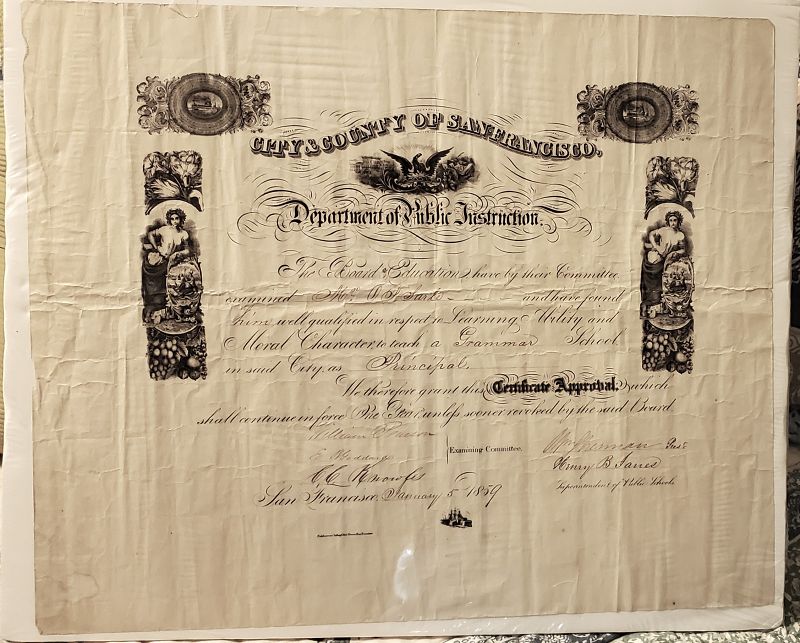 CITY & COUNTY OF SAN FRANCISCO,
Department of Public Instruction.
The Board of Education have by their Committee
examined and have found
him well qualified in respect to Learning Ability and
Moral Character to teach a Grammar School
in said City as Principal.
We therefore grant this Certificate Approval, which
shall continue in force One Year unless sooner revoked by the said Board.
William
Examining Committee.
C. C. Knowles
Henry B Janes
Superintendent of Public Schools
San Francisco, January 5 1859